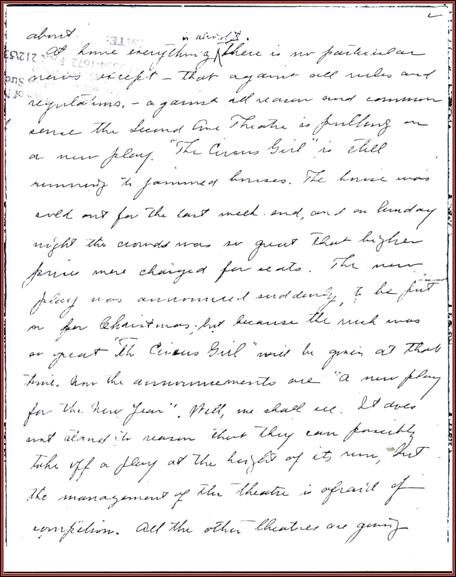 2
about
is alright.
At home everything there is no particular
news except - that against all rules and
regulations, - against all reason and common
sense the Second Ave Theatre is putting on
a new play. "The Circus Girl" is still
running to jammed houses. The house was
sold out for the last week-end, and on Sunday
night the crowds was so great that higher
prices were charged for seats. The new
play was announced suddenly, to be put
on for Christmas, but because the rush was
so great "The Circus Girl" will be given at that
time. Now the announcements are "a new play
for the New Year". Well, we shall see. It does
not stand to reason that they can possibly
take off a play at the height of its run, but
the management of the theatre is afraid of
competition. All the other theatres are giving